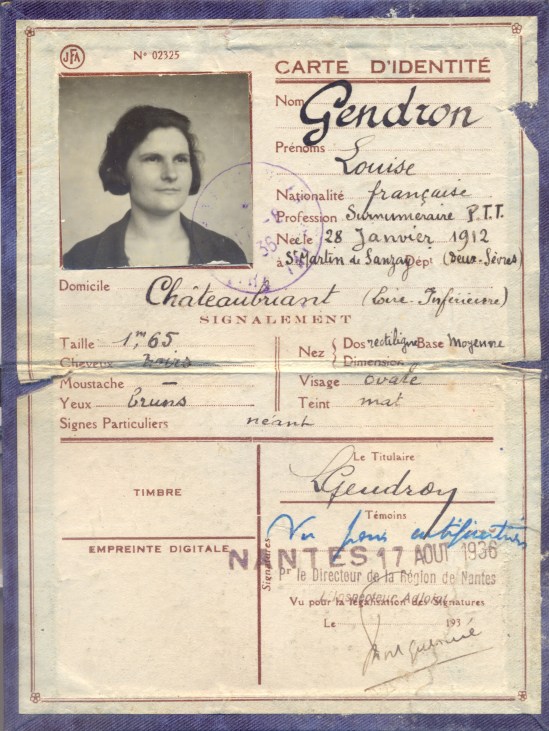 JFA
N° 02325
CARTE D'IDENTITÉ
Nom Gendron
Prénoms Louise
Nationalité française
Profession Surnuméraire P.T.T.
Née le 28 Janvier 1912
à St Martin de Sanzay Dépt (Deux-Sèvres)
Domicile Châteaubriant (Loire-Inférieure)
SIGNALEMENT
Taille 1m,65
Cheveux noirs
Moustache —
Yeux bruns
Signes Particuliers néant
Nez Dos rectiligne Base Moyenne
Dimension
Visage ovale
Teint mat
TIMBRE
EMPREINTE DIGITALE
Le Titulaire
LGendron
Témoins
Signatures
Vu pour
NANTES 17 AOUT 1936
Pr le Directeur de la Région de Nantes
L'Inspecteur Adjoint
Vu pour la légalisation des Signatures
Le 193